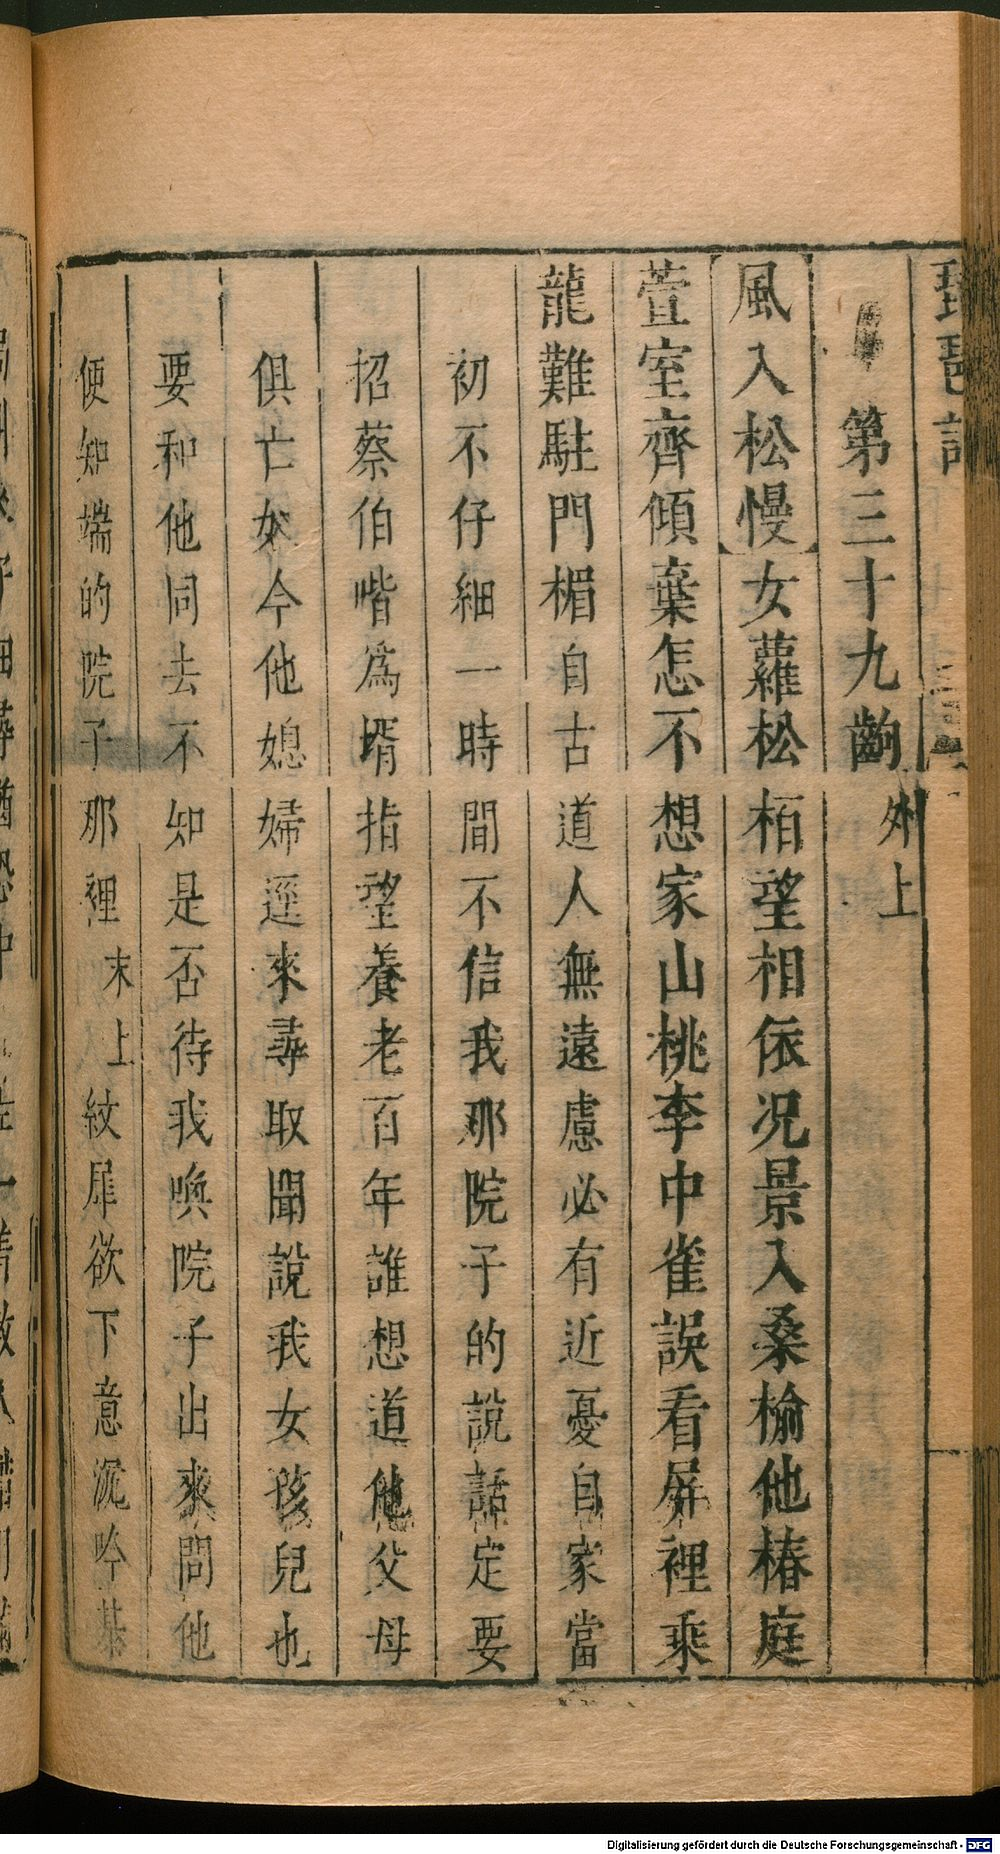 琵琶記
第三十九齣 外上
風入松慢女蘿松柏望相依况景入桑榆他椿庭
萱室齊傾棄怎不想家山桃李中雀誤看屏裡乘
龍難駐門楣自古道人無遠慮必有近憂自家當
初不仔細一時間不信我那院子的說話定要
招蔡伯喈爲壻指望養老百年誰想道他父母
俱亡如今他媳婦逕來尋取聞說我女孩兒也
要和他同去不知是否待我喚院子出來問他
便知端的院子那裡末上紋犀欲下意沉吟棊
Digitalisierung gefördert durch die Deutsche Forschungsgemeinschaft - DFG